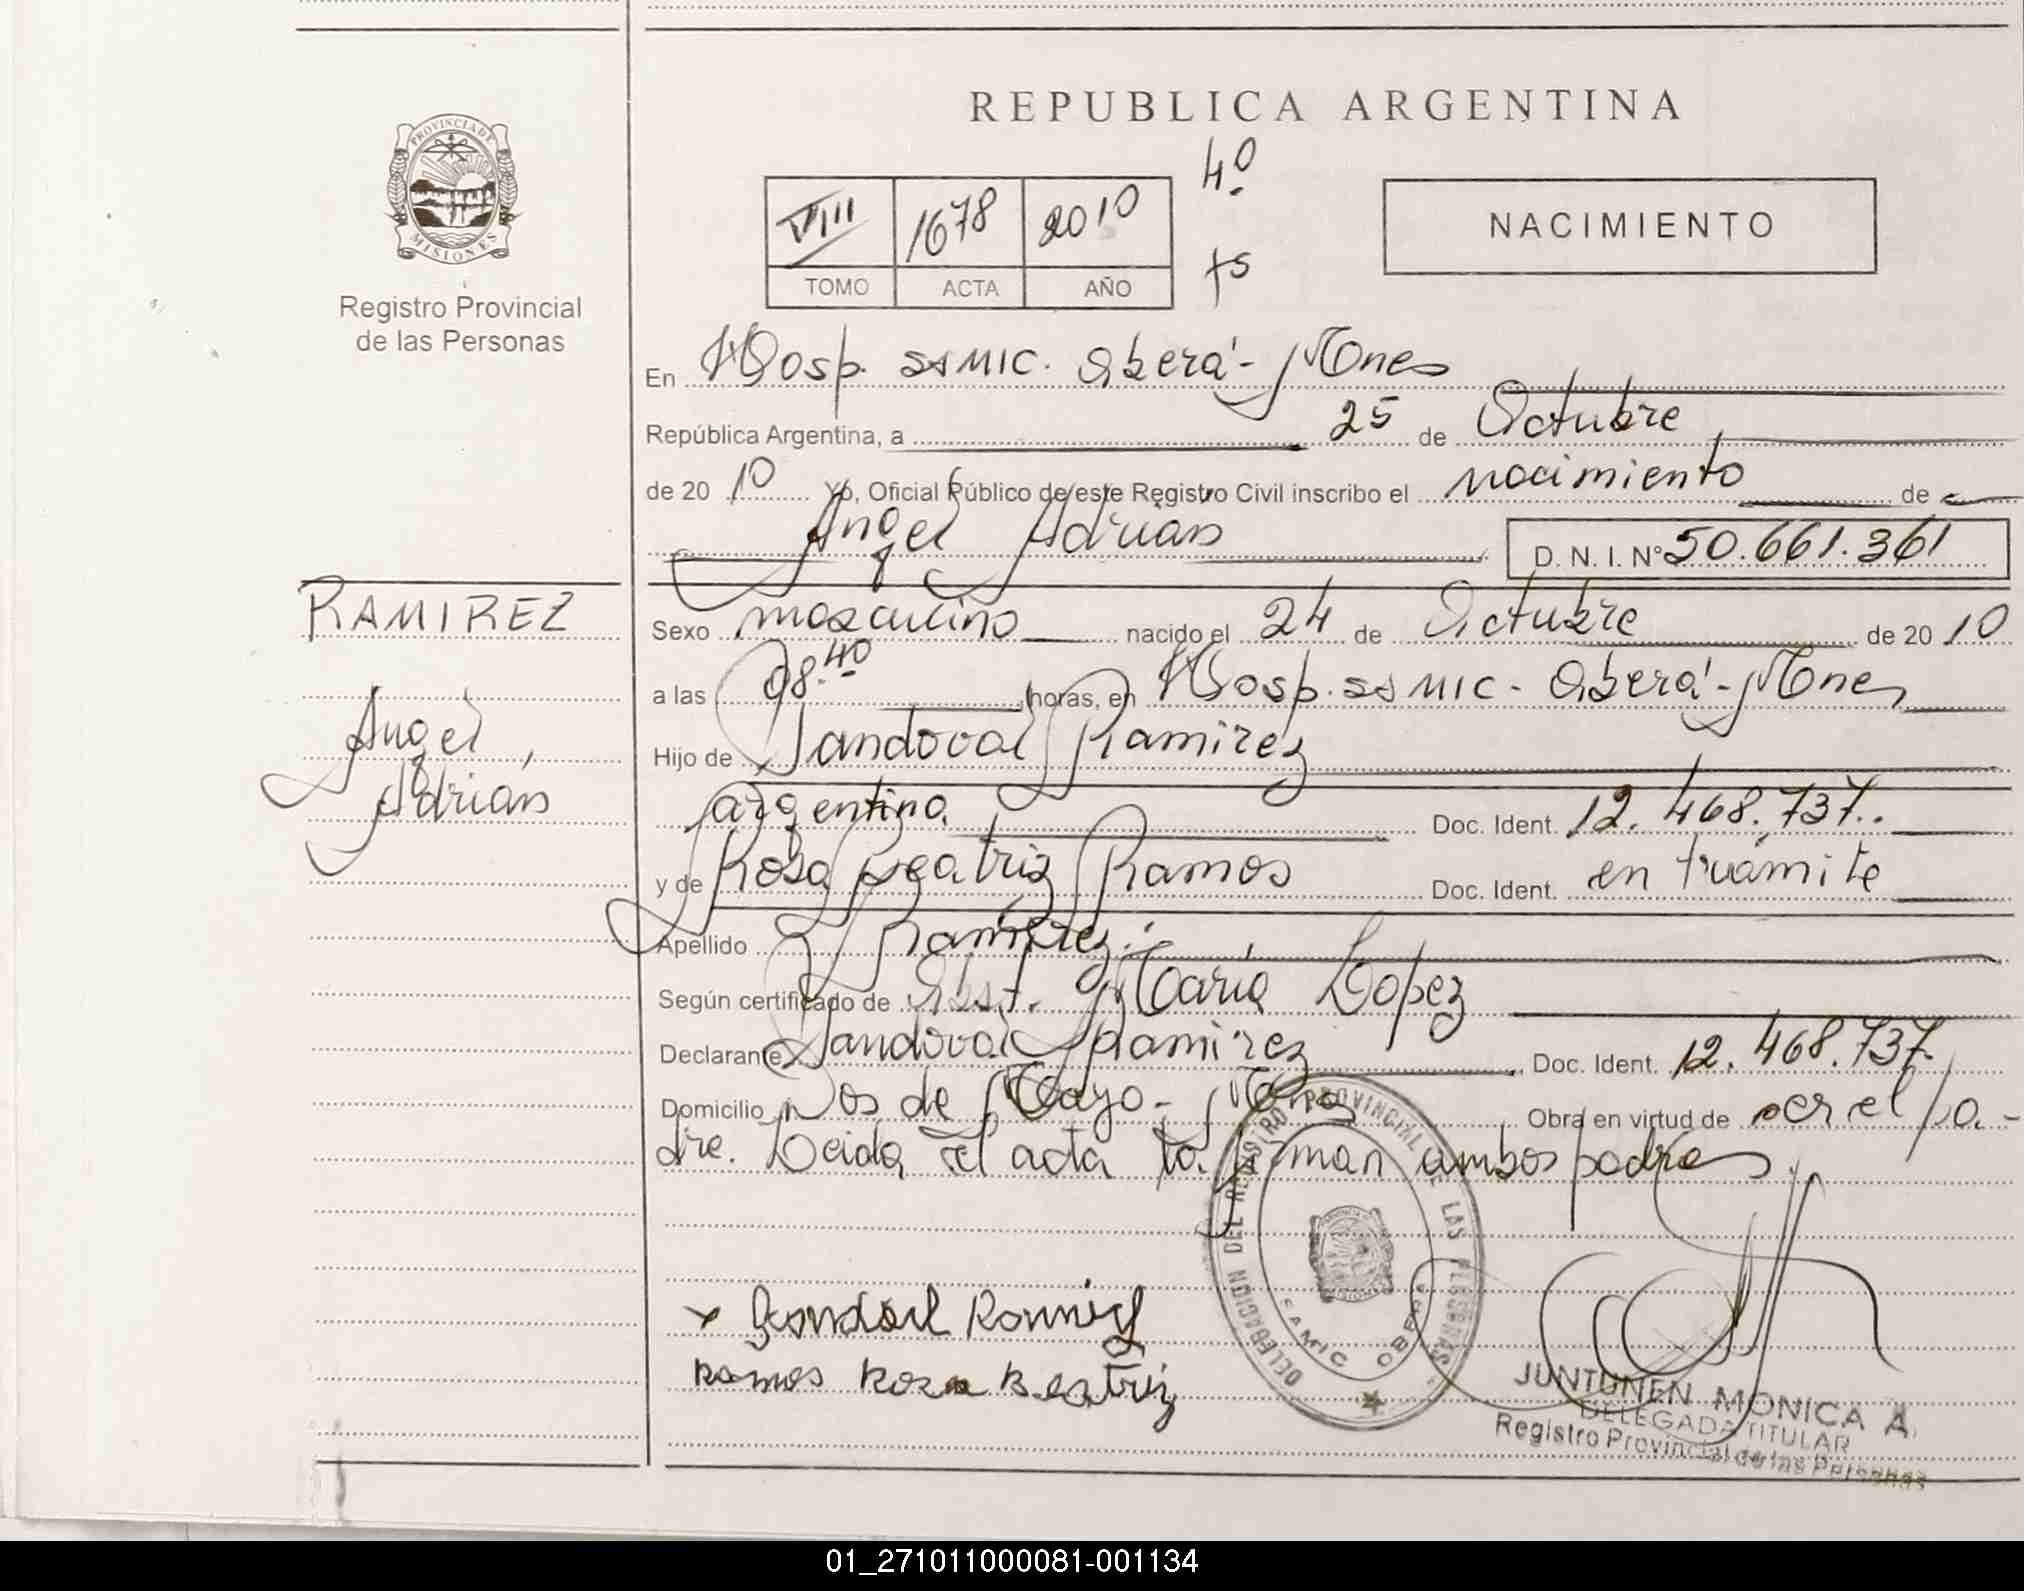 REPUBLICA ARGENTINA
PROVINCIA DE MISIONES
Registro Provincial
de las Personas
4º
VIII 1678 2010
TOMO ACTA AÑO
NACIMIENTO
En Hosp. SAMIC. Oberá - Mnes
República Argentina, a 25 de Octubre
de 2010 Yo, Oficial Público de este Registro Civil inscribo el nacimiento de
Angel Adrián D. N. I. Nº 50.661.361
RAMIREZ
Angel
Adrián
Sexo masculino nacido el 24 de Octubre de 2010
a las 08.40 horas, en Hosp. SAMIC - Oberá - Mnes
Hijo de Sandoval Ramirez
argentino. Doc. Ident. 12.468.737.
y de Rosa Beatriz Ramos Doc. Ident. en trámite
Apellido Ramirez.
Según certificado de Obst. María Lopez
Declarante Sandoval Ramirez Doc. Ident. 12.468.737
Domicilio Dos de Mayo - Mnes Obra en virtud de ser el pa-
dre. Leida el acta la firman ambos padres
DELEGACION DEL REGISTRO PROVINCIAL DE LAS PERSONAS
SAMIC OBERA
x Sandoval Ramirez
Ramos Rosa Beatriz
JUNTUNEN MONICA A.
DELEGADA TITULAR
Registro Provincial de las Personas
01_271011000081-001134